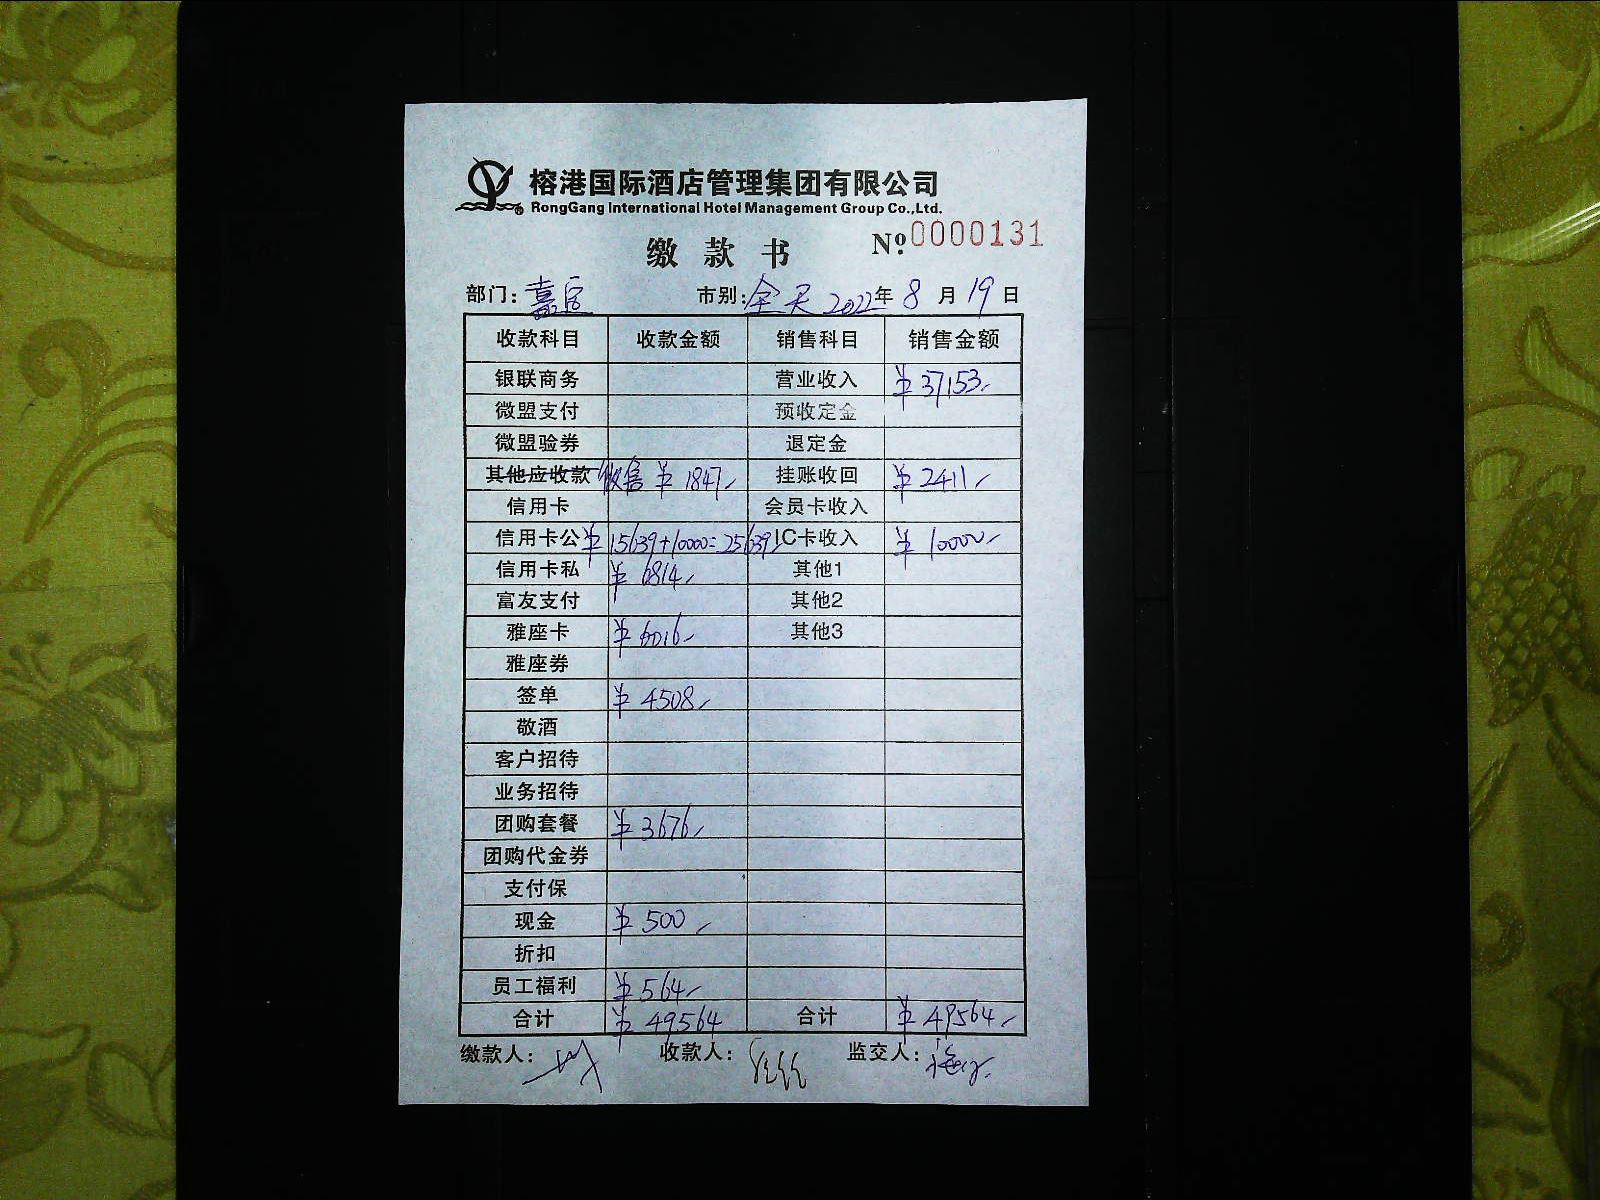 榕港国际酒店管理集团有限公司
RongGang International Hotel Management Group Co.,Ltd.
缴款书 №:0000131
部门: 嘉 市别: 全天 2022年 8月 19日
收款科目 收款金额 销售科目 销售金额
银联商务 营业收入 ¥37153
微盟支付 预收定金
微盟验券 退定金
其他应收款 ¥1847 挂账收回 ¥2411
信用卡 会员卡收入
信用卡公 ¥15639+10000=25639 IC卡收入 ¥10000
信用卡私 ¥6814 其他1
富友支付 其他2
雅座卡 ¥6016 其他3
雅座券
签单 ¥4508
敬酒
客户招待
业务招待
团购套餐 ¥3676
团购代金券
支付保
现金 ¥500
折扣
员工福利 ¥564
合计 ¥49564 合计 ¥49564
缴款人: 收款人: 监交人: